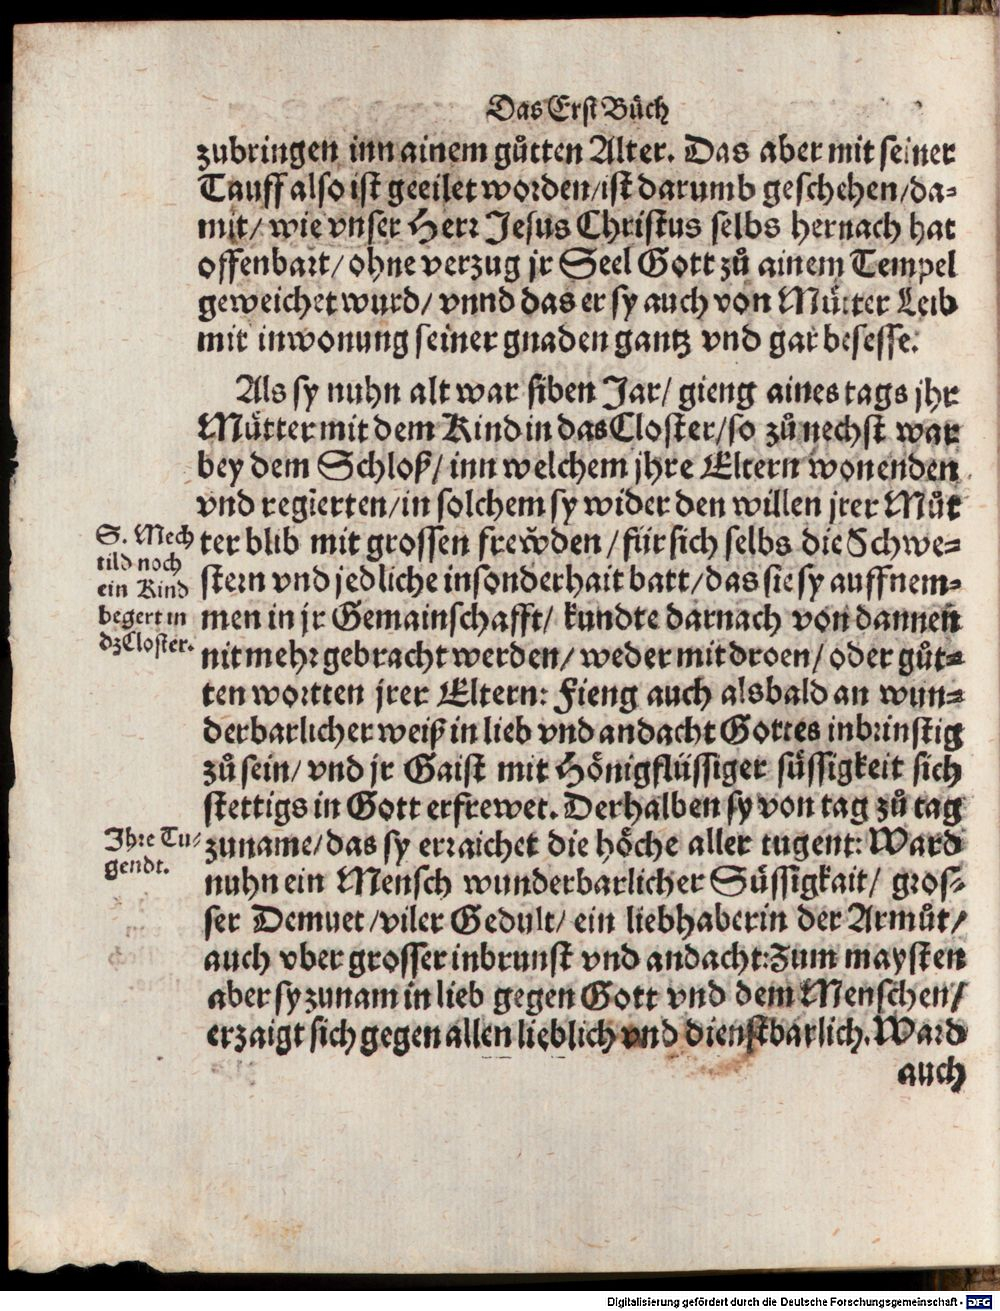 Das Erst Bůch
zubringen inn ainem gůtten Alter. Das aber mit seiner
Tauff also ist geeilet worden/ist darumb geschehen/da-
mit/ wie vnser Herr Jesus Christus selbs hernach hat
offenbart/ ohne verzug jr Seel Gott zů ainem Tempel
geweichet wurd/ vnnd das er sy auch von Můtter Leib
mit inwonung seiner gnaden gantz vnd gar besesse.
Als sy nuhn alt war siben Jar/ gieng aines tags jhr
Můtter mit dem Kind in das Closter/so zů nechst war
bey dem Schloß/ inn welchem jhre Eltern wonenden
vnd regierten/in solchem sy wider den willen jrer Můt
ter blib mit grossen frewden/für sich selbs die Schwe-
stern vnd jedliche insonderhait batt/das sie sy auffnem-
men in jr Gemainschafft/ kundte darnach von dannen
nit mehr gebracht werden/ weder mit droen/ oder gůt-
ten wortten jrer Eltern: Fieng auch alsbald an wun-
derbarlicher weiß in lieb vnd andacht Gottes inbrinstig
zů sein/ vnd jr Gaist mit Hönigflüssiger süssigkeit sich
stettigs in Gott erfrewet. Derhalben sy von tag zů tag
zuname/das sy erraichet die höche aller tugent: Ward
nuhn ein Mensch wunderbarlicher Süssigkait/ gros-
ser Demuet/viler Gedult/ ein liebhaberin der Armůt/
auch vber grosser inbrunst vnd andacht: Zum maysten
aber sy zunam in lieb gegen Gott vnd dem Menschen/
erzaigt sich gegen allen lieblich vnd dienstbarlich. Ward
auch
S. Mech
tild noch
ein Kind
begert in
dz Closter.
Ihre Tu-
gendt.
Digitalisierung gefördert durch die Deutsche Forschungsgemeinschaft - DFG